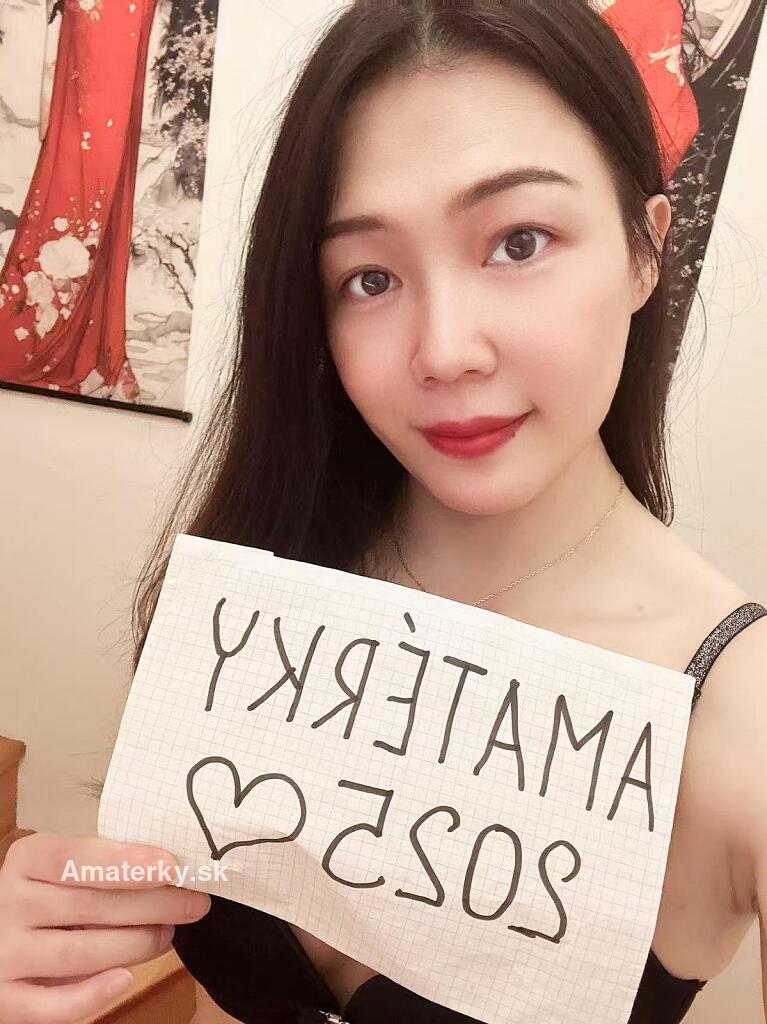 AMATÉRKY
2025 ♡
Amaterky.sk